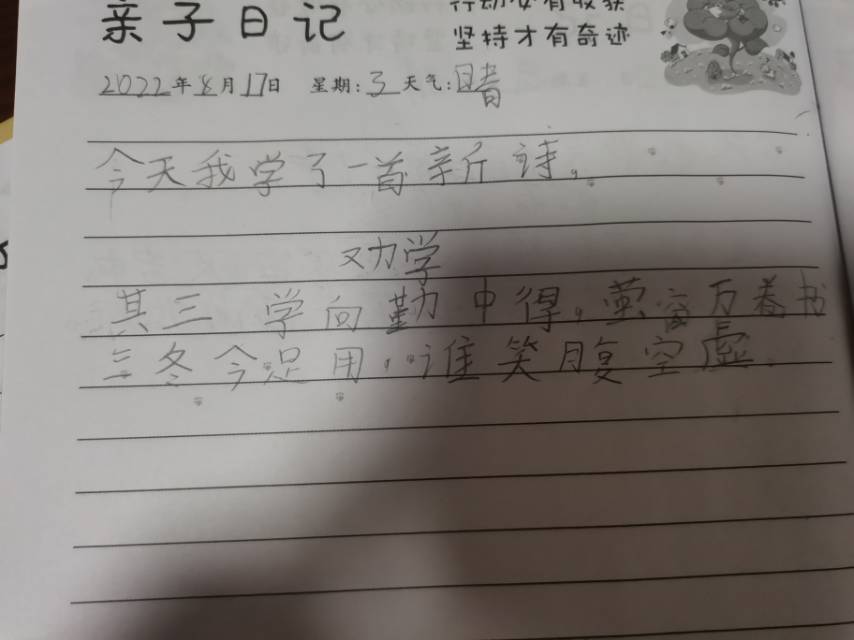 亲子日记
行动必有收获
坚持才有奇迹
2022年8月17日 星期:3 天气:晴
今天我学了一首新诗,
劝学
其三 学向勤中得,萤窗万卷书
三冬今足用,谁笑腹空虚.